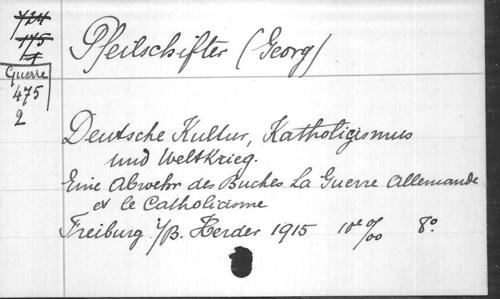 724
175
1
Guerre
475
2
Pfeilschifter (Georg)
Deutsche Kultur, Katholizismus
und Weltkrieg.
Eine Abwehr des Buches La Guerre Allemande
et le Catholicisme
Freiburg i/B. Herder 1915 10e 0/00 8º